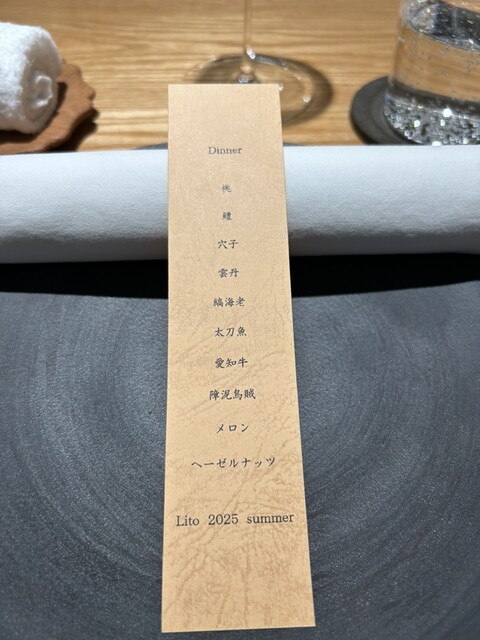 Dinner
桃
鱧
穴子
雲丹
縞海老
太刀魚
愛知牛
障泥烏賊
メロン
ヘーゼルナッツ
Lito 2025 summer